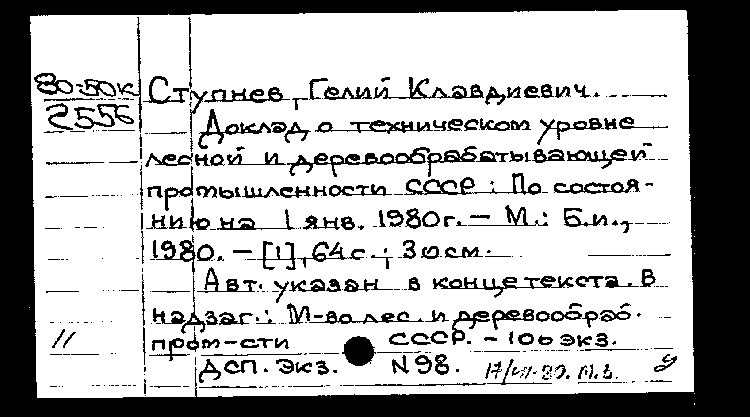 80-50к
2556
Ступнев, Гелий Клавдиевич.
Доклад о техническом уровне
лесной и деревообрабатывающей
промышленности СССР : По состоя-
нию на 1 янв. 1980г. – М.: Б.и.,
1980. – [1], 64 с. ; 30 см.
Авт. указан в конце текста. В
надзаг.: М-во лес. и деревообраб.
пром-сти СССР. – 100 экз.
ДСП. Экз. N 98.
11